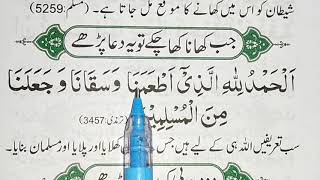 شیطان کو اس میں کھانے کا موقع مل جاتا ہے۔ (مسلم:5259)
جب کھانا کھا چکے تو یہ دعا پڑھے
اَلْحَمْدُ لِلّٰهِ الَّذِیْ اَطْعَمَنَا وَسَقَانَا وَجَعَلَنَا
مِنَ الْمُسْلِمِیْنَ (ترمذی:3457)
سب تعریفیں اللہ ہی کے لیے ہیں جس کھلایا اور پلایا اور مسلمان بنایا۔